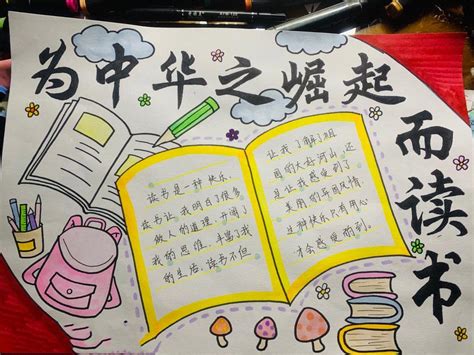 为中华之崛起而读书
读书是一种快乐,
读书让我明白了很多
做人的道理,开阔了
我的思维,丰富了我
的生活,读书不但
让我了解了祖
国的大好河山,还
是让我感受到了
美丽的异国风情,
这种快乐,只有用心
才会感受得到。